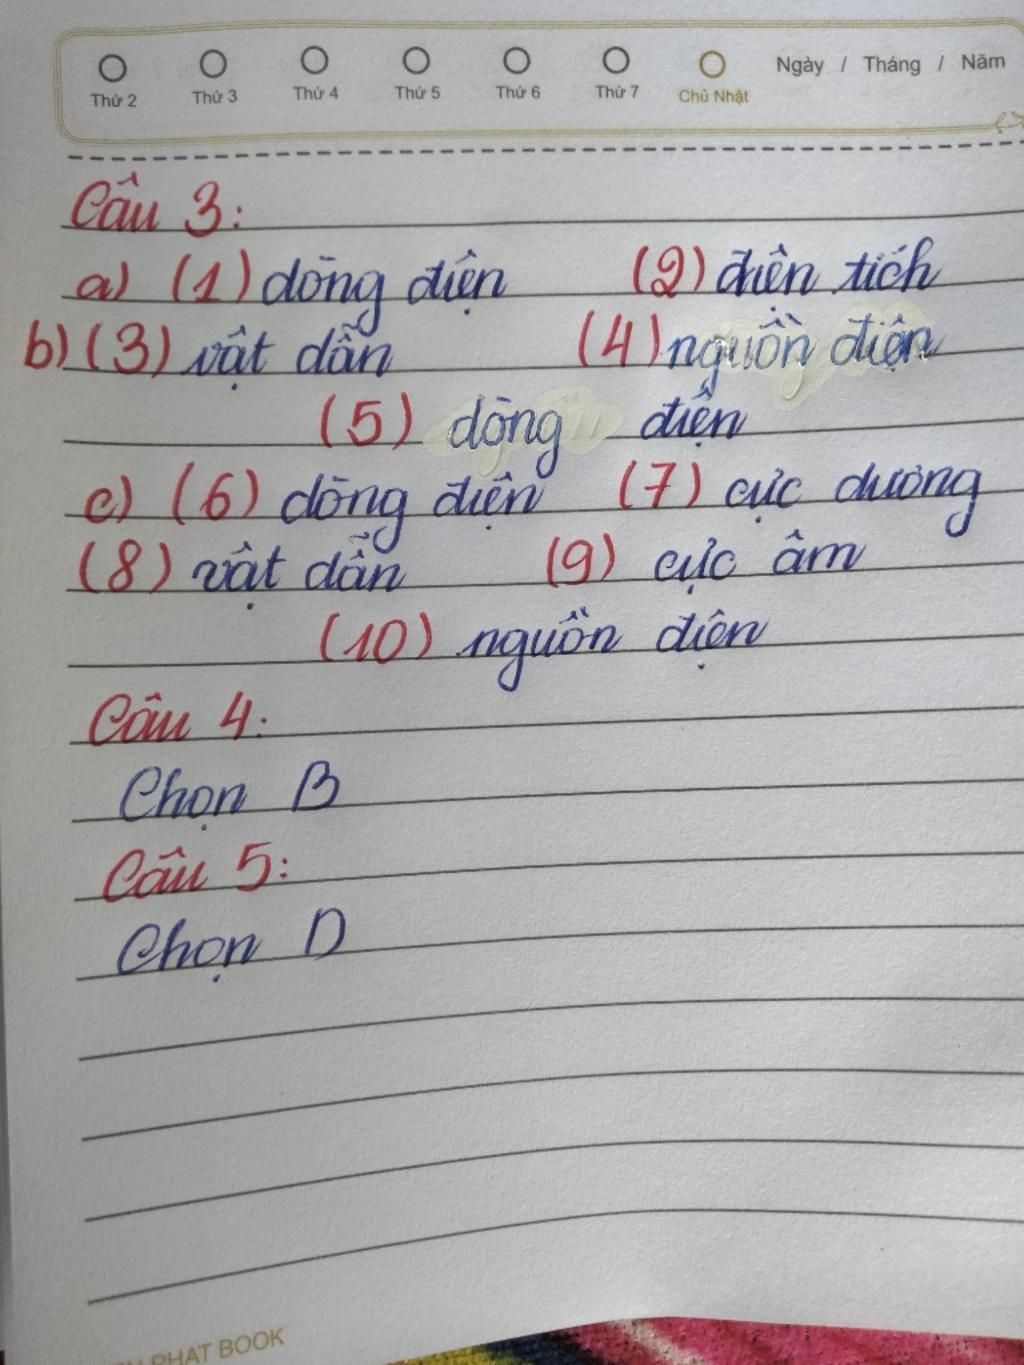 Thứ 2 Thứ 3 Thứ 4 Thứ 5 Thứ 6 Thứ 7 Chủ Nhật Ngày / Tháng / Năm
Câu 3:
a) (1) dòng điện (2) điện tích
b) (3) vật dẫn (4) nguồn điện
(5) dòng điện
c) (6) dòng điện (7) cực dương
(8) vật dẫn (9) cực âm
(10) nguồn điện
Câu 4:
Chọn B
Câu 5:
Chọn D
PHAT BOOK